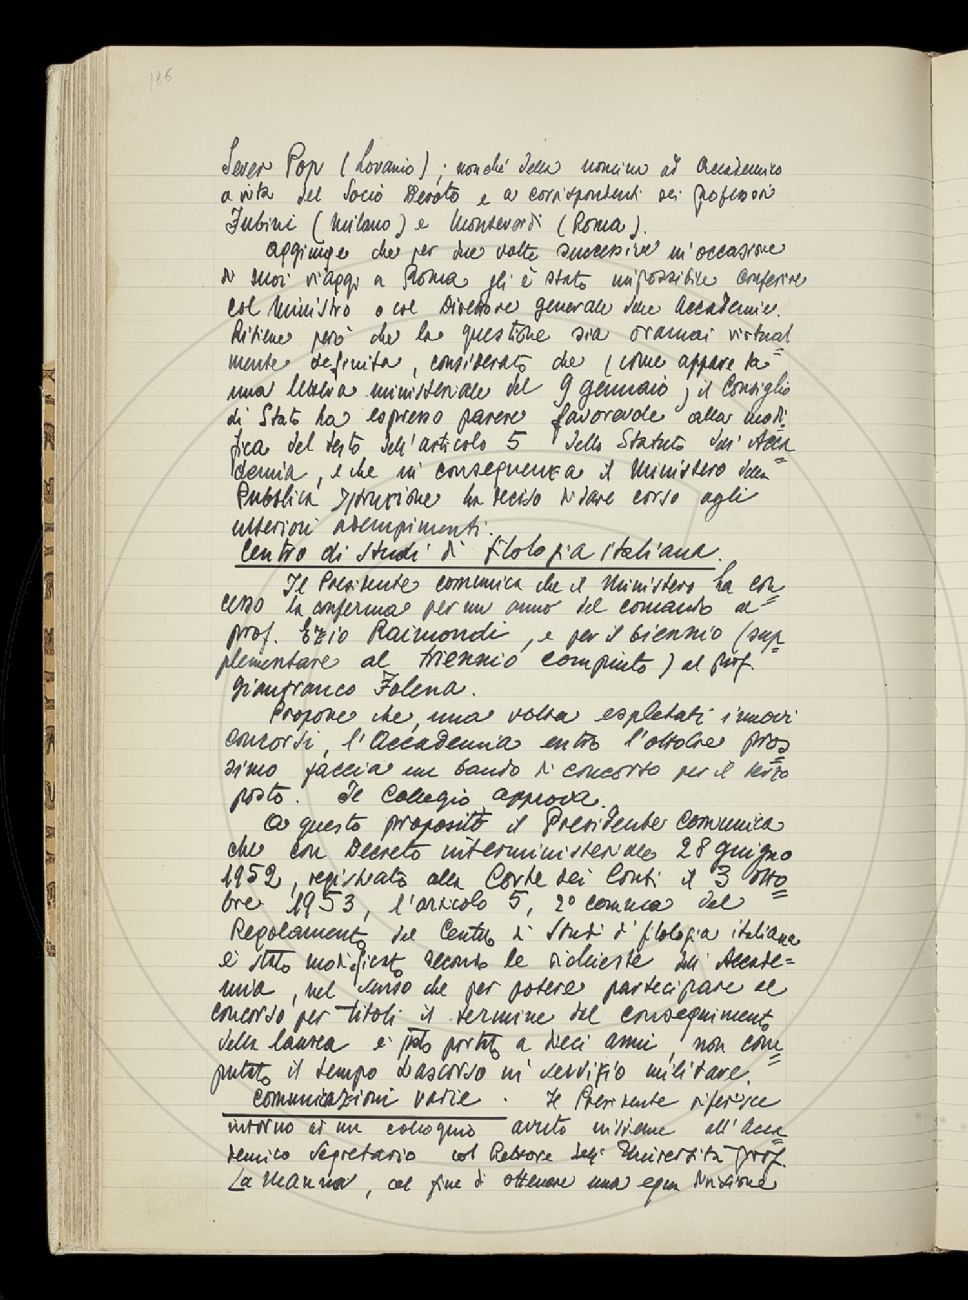 186
Sever Pop (Lovanio); nonché della nomina ad Accademico
a vita del Socio Devoto e a corrispondenti dei professori
Fubini (Milano) e Monteverdi (Roma).
Aggiunge che per due volte successive in occasione
di suoi viaggi a Roma gli è stato impossibile conferire
col Ministro o col Direttore generale delle Accademie.
Ritiene però che la questione sia oramai virtual=
mente definita, considerato che (come appare da
una lettera ministeriale del 9 gennaio) il Consiglio
di Stato ha espresso parere favorevole alla modi=
fica del testo dell'articolo 5 dello Statuto dell'Acca=
demia, e che in conseguenza il Ministero della
Pubblica Istruzione ha deciso di dare corso agli
ulteriori adempimenti.
Centro di Studi di filologia italiana.
Il Presidente comunica che il Ministero ha con=
cesso la conferma per un anno del comando al
prof. Ezio Raimondi, e per il biennio (sup=
plementare al triennio compiuto) al prof.
Gianfranco Folena.
Propone che, una volta espletati i nuovi
concorsi, l'Accademia entro l'ottobre pros=
simo faccia un bando di concorso per il terzo
posto. Il Collegio approva.
A questo proposito il Presidente comunica
che con Decreto interministeriale 28 giugno
1952, registrato alla Corte dei Conti il 3 otto=
bre 1953, l'articolo 5, 2° comma del
Regolamento del Centro di Studi di filologia italiana
è stato modificato secondo le richieste dell'Accade=
mia, nel senso che per potere partecipare al
concorso per titoli il termine del conseguimento
della laurea è stato portato a dieci anni, non com=
putato il tempo trascorso in servizio militare.
Comunicazioni varie. Il Presidente riferisce
intorno ad un colloquio avuto insieme all'Acca=
demico Segretario col Rettore dell'Università prof.
La Manna, al fine di ottenere una equa divisione